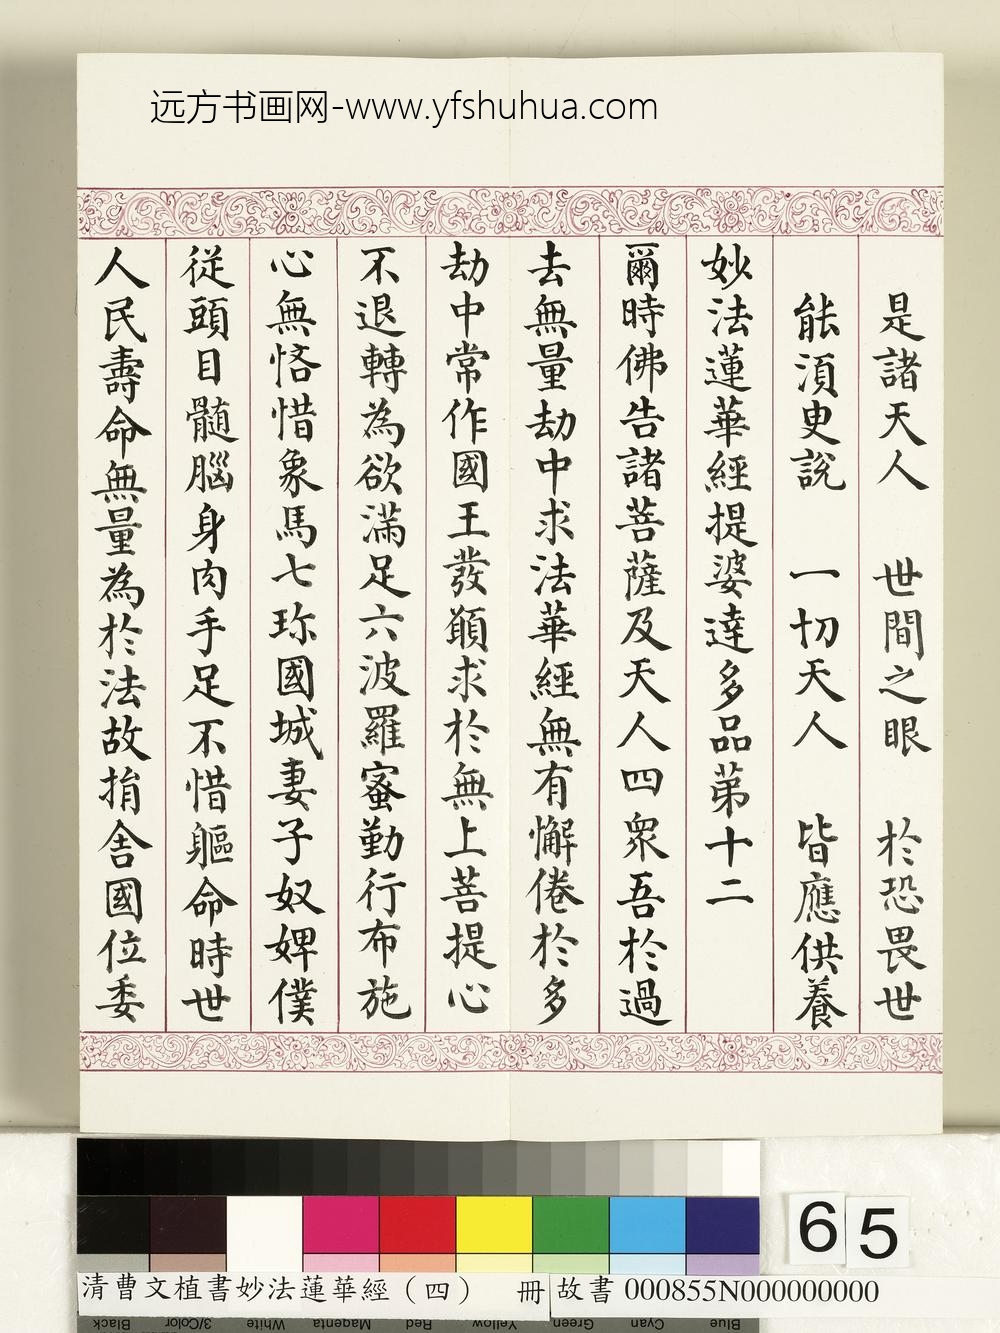 远方书画网-www.yfshuhua.com
是諸天人 世間之眼 於恐畏世
能須臾說 一切天人 皆應供養
妙法蓮華經提婆達多品第十二
爾時佛告諸菩薩及天人四眾吾於過
去無量劫中求法華經無有懈倦於多
劫中常作國王發願求於無上菩提心
不退轉為欲滿足六波羅蜜勤行布施
心無悋惜象馬七珎國城妻子奴婢僕
從頭目髓腦身肉手足不惜軀命時世
人民壽命無量為於法故捐舍國位委
65
清曹文植書妙法蓮華經（四） 冊
故書 000855N000000000
Black 3/Color White Magenta Red Yellow Green Cyan Blue